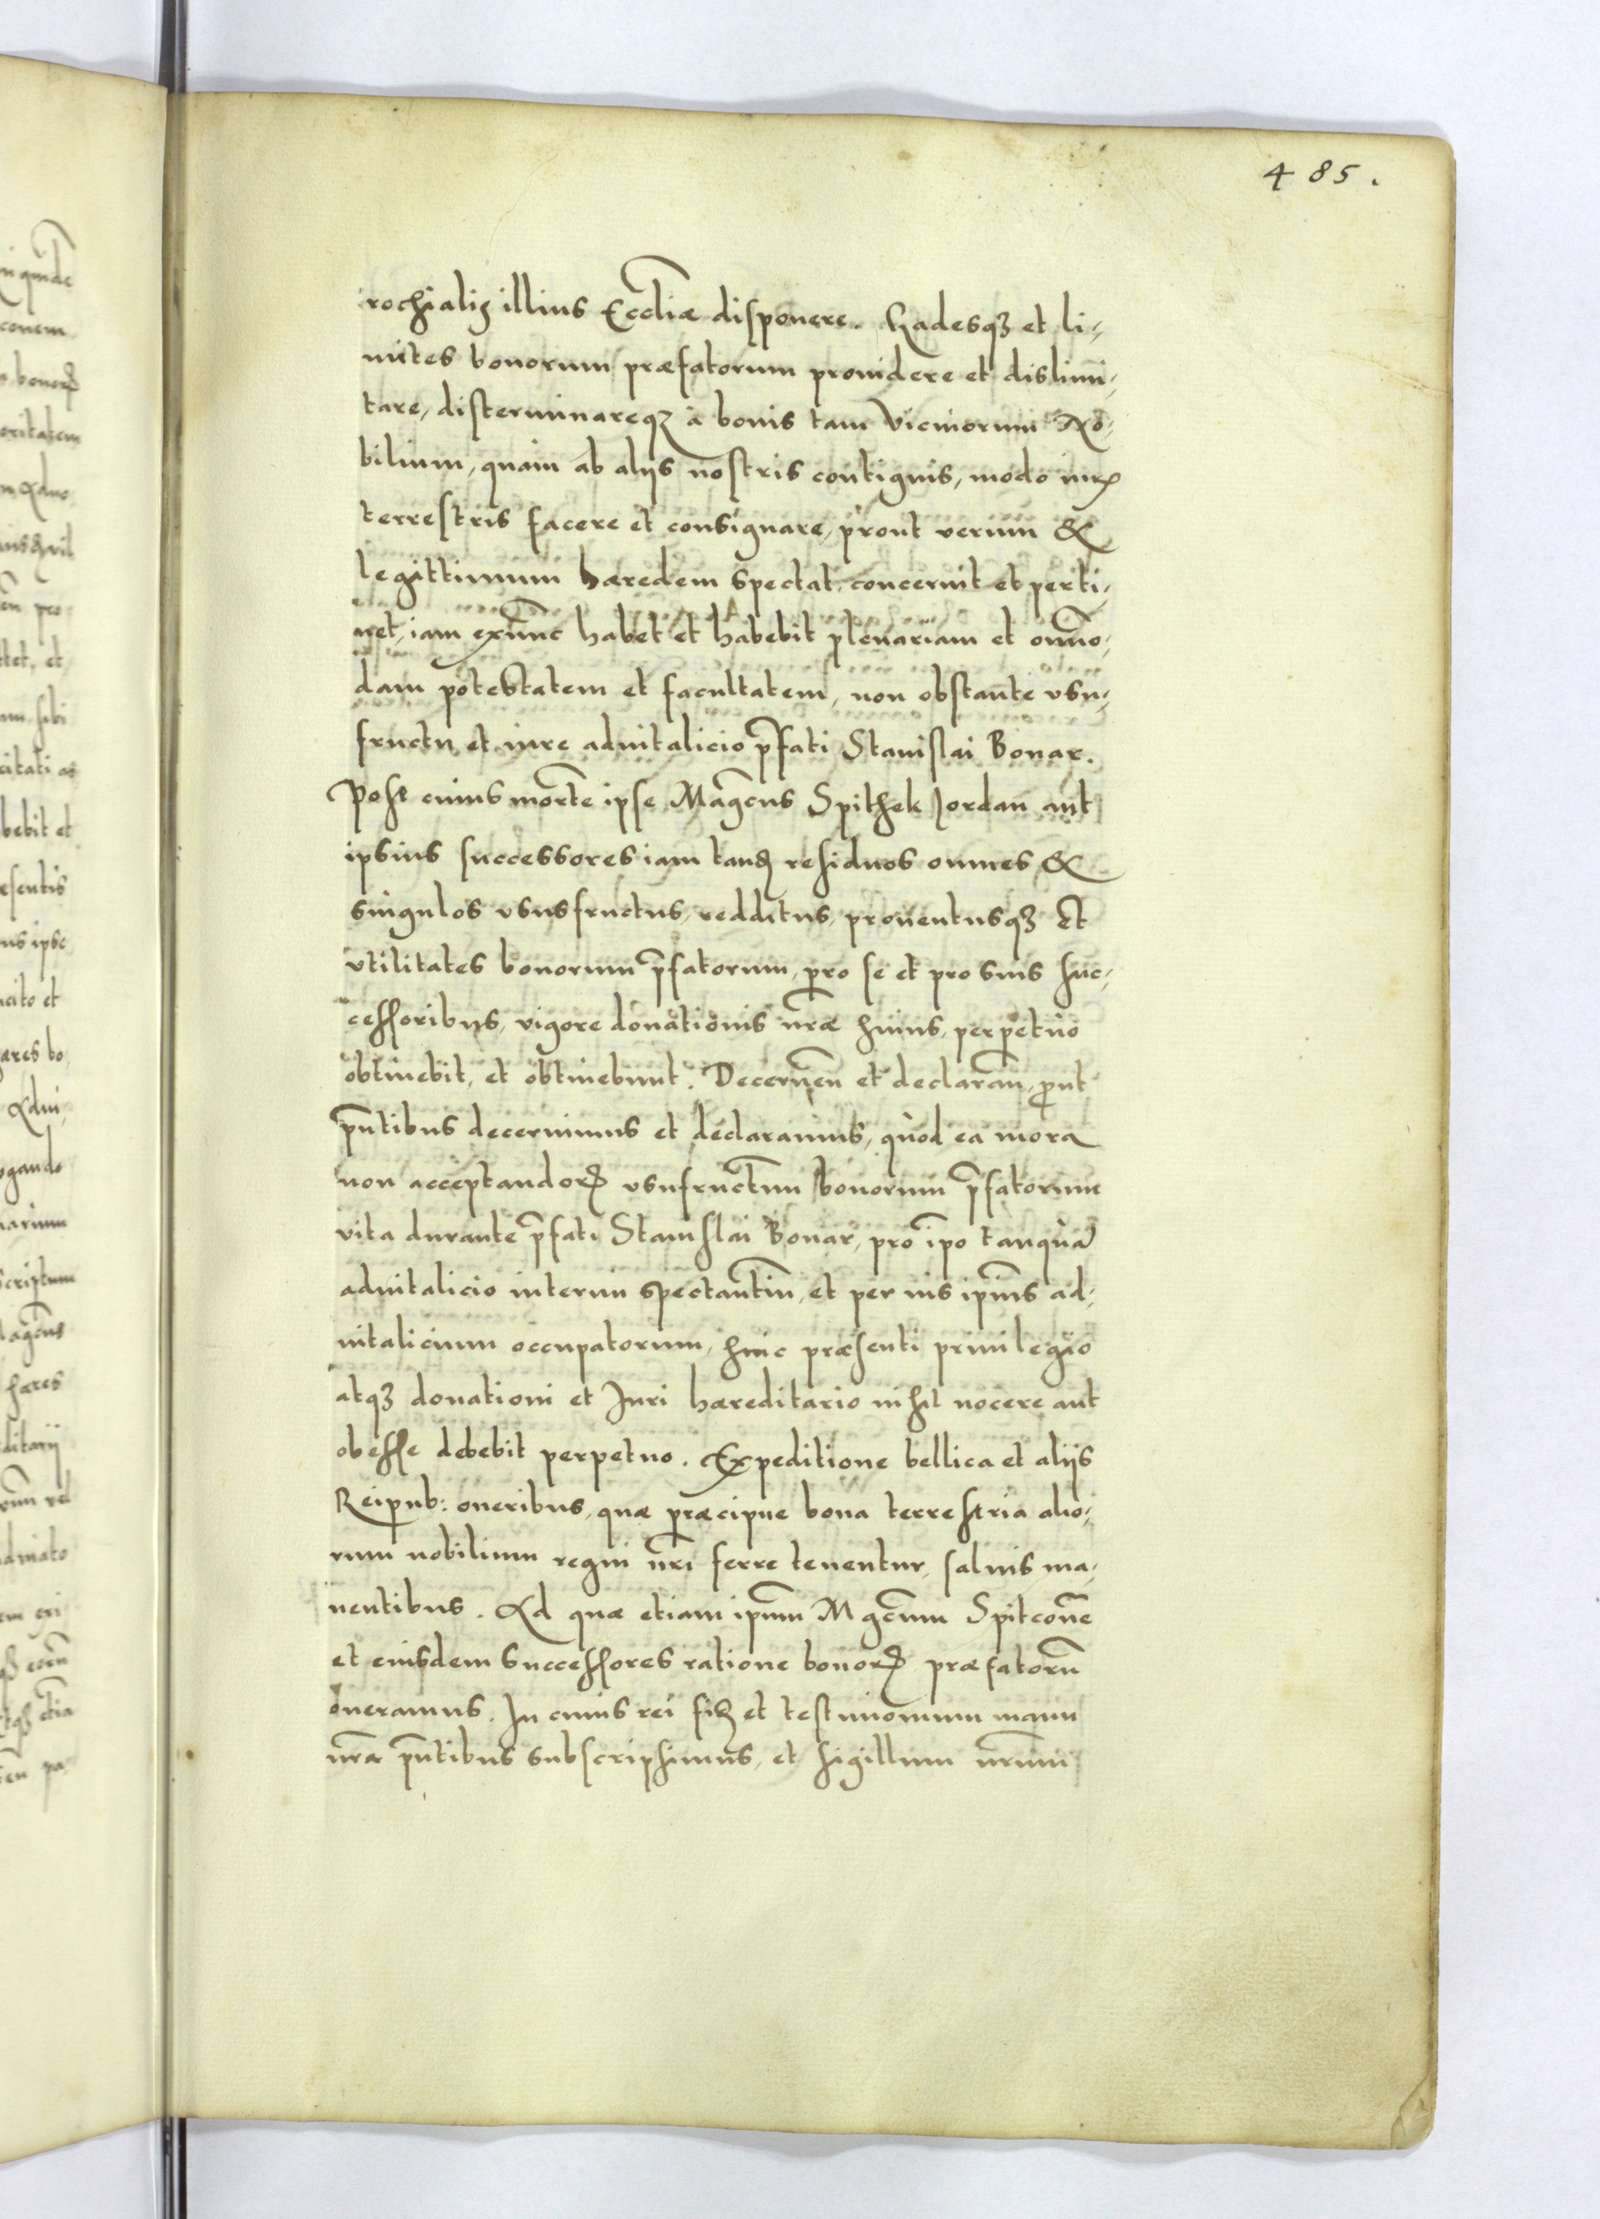 485.
rochialis illius Eccliæ disponere. Gadesqꝫ et li-
mites bonorum præfatorum providere et dislimi-
tare, disterminareqꝫ à bonis tam Vicinorum No-
bilium, quam ab aliis nostris contiguis, modo iuris
terrestris facere et consignare, prout verum &
legittimum hæredem spectat, concernit et perti-
net, iam extunc habet et habebit plenariam et omno-
dam potestatem et facultatem, non obstante vsu-
fructu et iure aduitalicio pfati Stanislai Bonar.
Post cuius morte ipse Magcus Spithek Jordan aut
ipsius successores iam tandem residuos omnes &
singulos vsusfructus, redditus, prouentusqꝫ Et
vtilitates bonorum pfatorum, pro se et pro suis suc-
cessoribus, vigore donationis nræ huius, perpetuo
obtinebit, et obtinebunt. Decernen et declaran, put
pntibus decernimus et declaramus, quod ea mora
non acceptandorum vsufructum bonorum pfatorum
vita durante pfati Stanislai Bonar, pro ipo tanqua
aduitalicio interim spectantim, et per ius ipius ad-
uitalicium occupatorum, huic præsenti priuilegio
atqꝫ donationi et Juri hæreditario nihil nocere aut
obesse debebit perpetuo. Expeditione bellica et aliis
Reipub: oneribus, quæ præcipue bona terrestria alio-
rum nobilium regni nri ferre tenentur, saluis ma-
nentibus. Ad quæ etiam ipum Mgcum Spitcone
et eiusdem successores ratione bonorum præfatoru
oneramus. In cuius rei fidem et testimonium manu
nra pntibus subscripsimus, et sigillum nrum